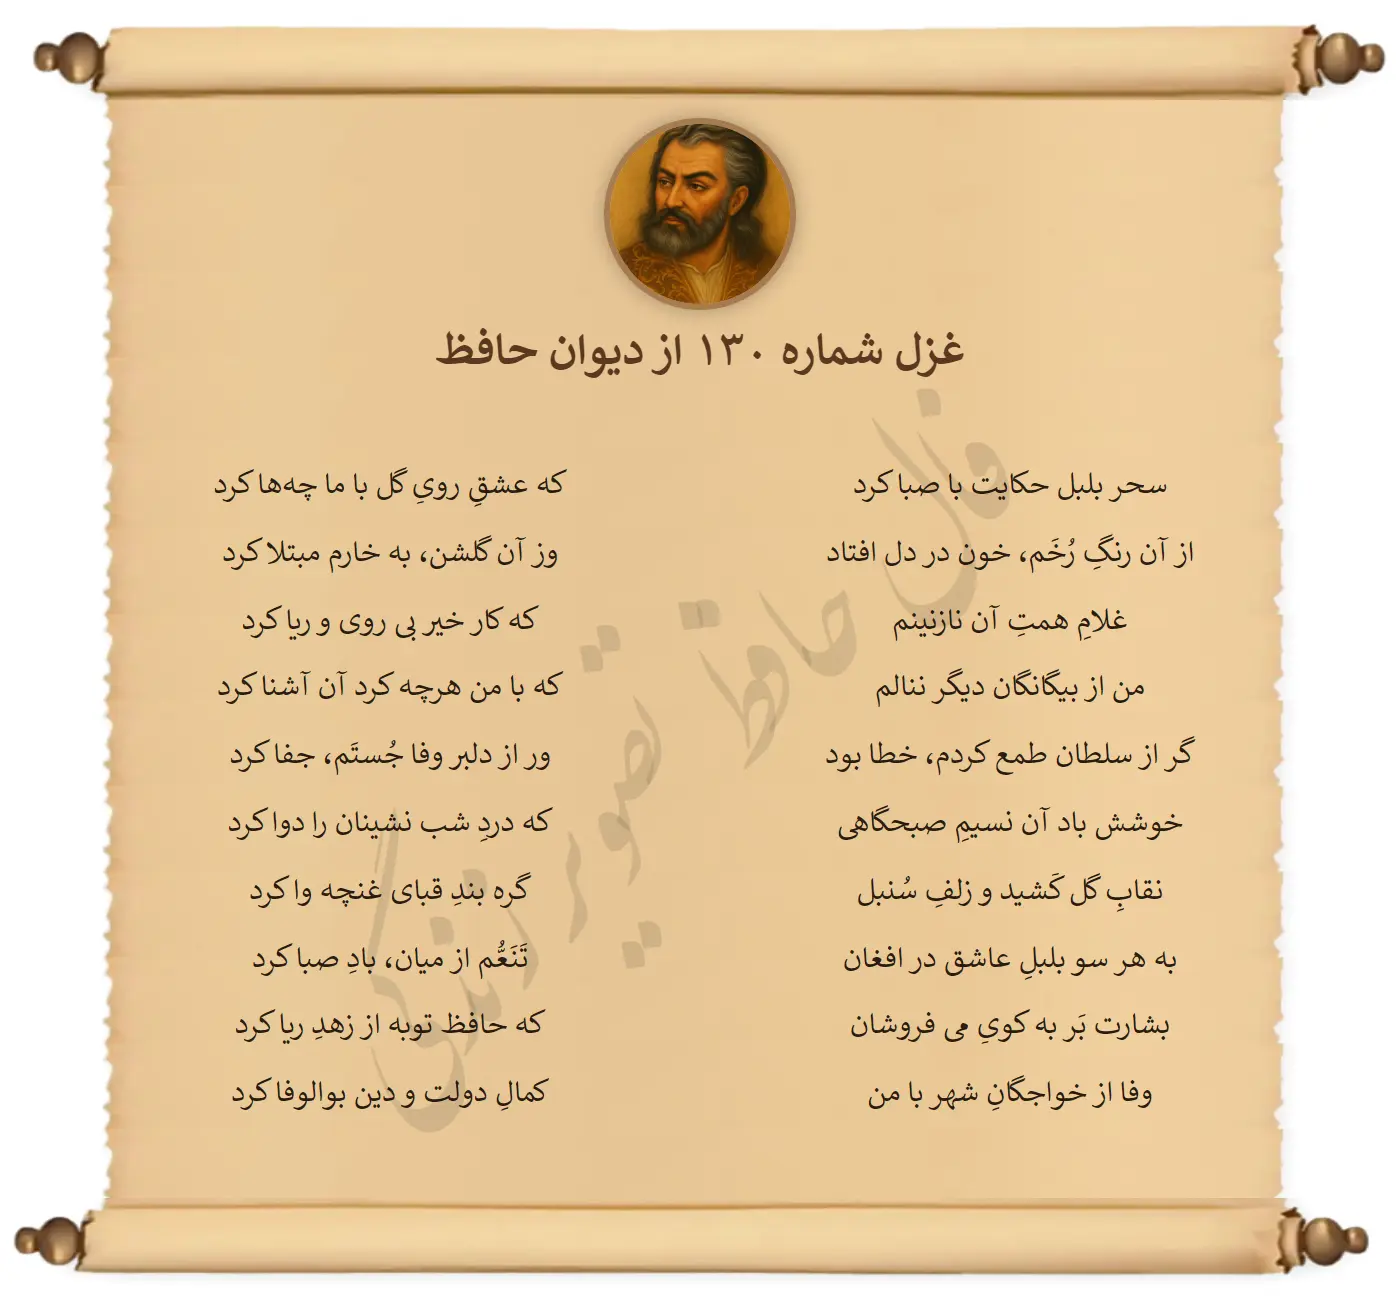 غزل شماره ۱۳۰ از دیوان حافظ
سحر بلبل حکایت با صبا کرد
که عشقِ رویِ گل با ما چه‌ها کرد
از آن رنگِ رُخَم، خون در دل افتاد
وز آن گلشن، به خارم مبتلا کرد
غلامِ همتِ آن نازنینم
که کار خیر بی روی و ریا کرد
من از بیگانگان دیگر ننالم
که با من هرچه کرد آن آشنا کرد
گر از سلطان طمع کردم، خطا بود
ور از دلبر وفا جُستَم، جفا کرد
خوشش باد آن نسیمِ صبحگاهی
که دردِ شب نشینان را دوا کرد
نقابِ گل کَشید و زلفِ سُنبل
گره بندِ قبای غنچه وا کرد
به هر سو بلبلِ عاشق در افغان
تَنَعُّم از میان، بادِ صبا کرد
بشارت بَر به کویِ می فروشان
که حافظ توبه از زهدِ ریا کرد
وفا از خواجگانِ شهر با من
کمالِ دولت و دین بوالوفا کرد
فال حافظ تصویر زندگی